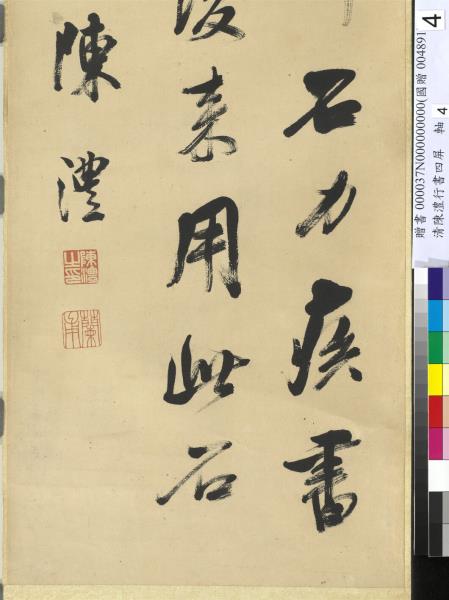 石力疾書
後來用此石
陳澧
陳澧之印
蘭甫
4
贈書 000037N000000000(國贈 004891
清陳澧行書四屏 軸 4